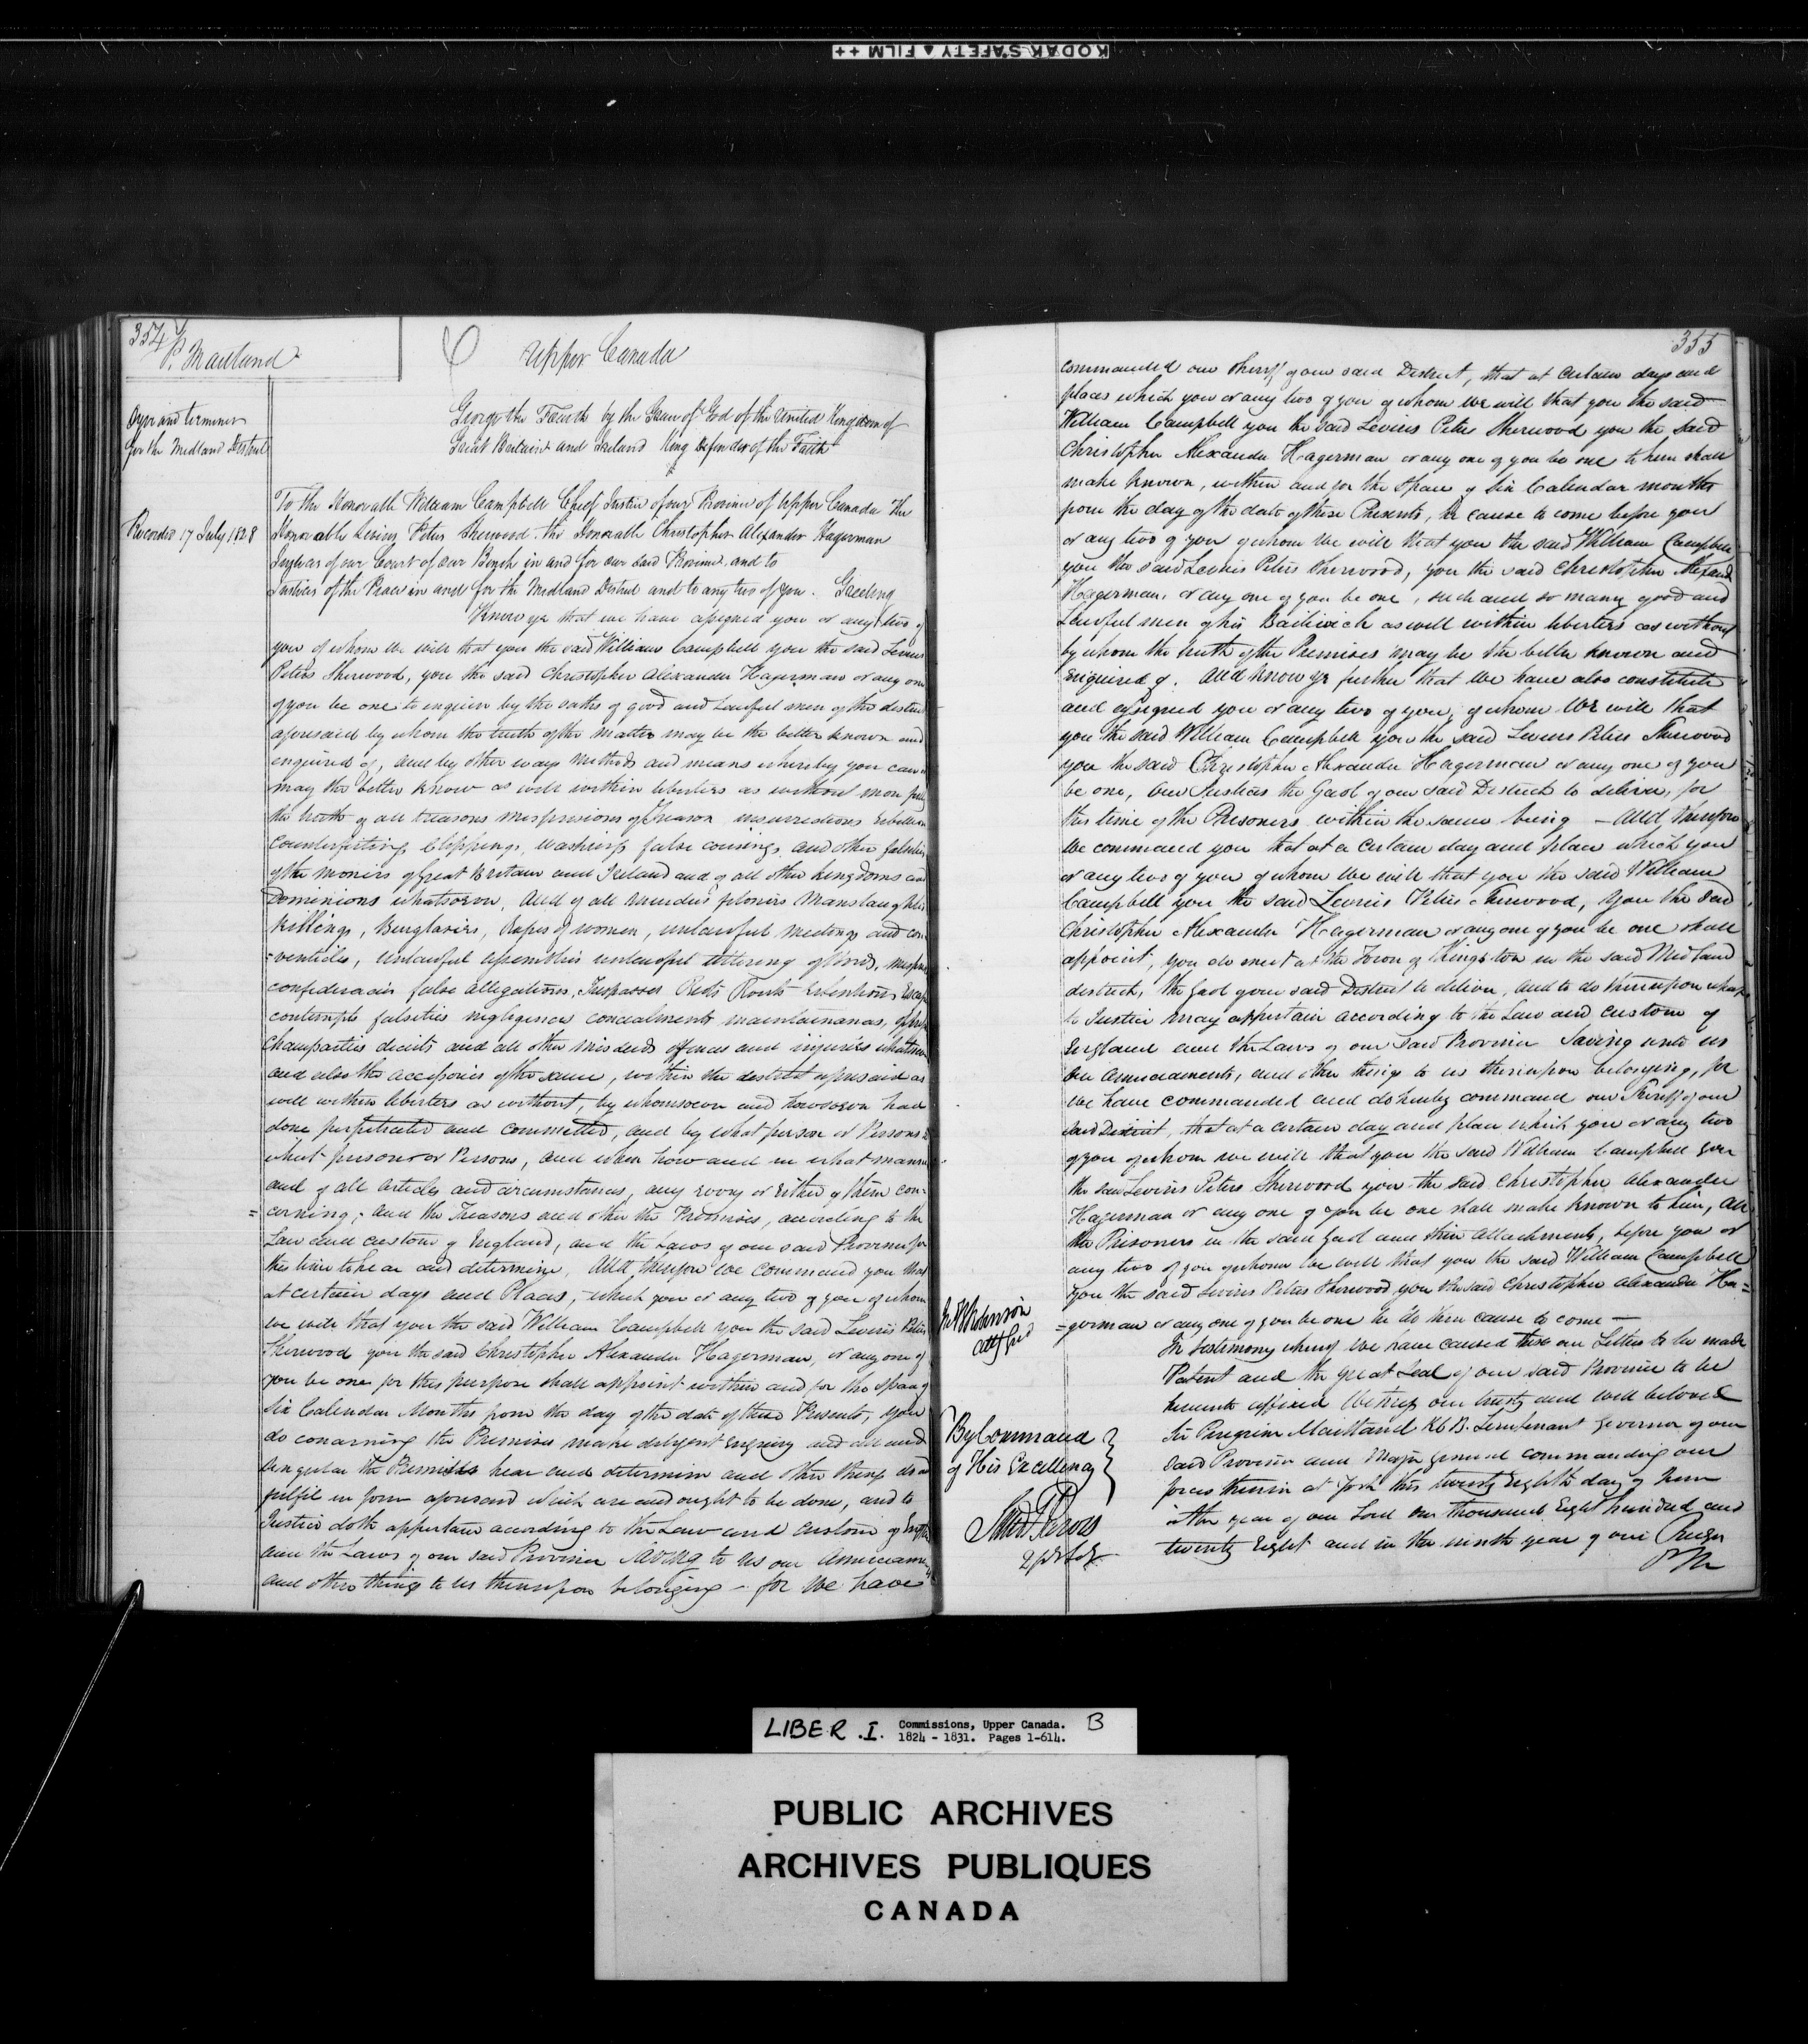 KODAK SAFETY ▲ FILM ++
354
P. Maitland
Upper Canada
Oyer and terminer
for the Midland District
George the Fourth by the Grace of God of the United Kingdom of
Great Britain and Ireland King Defender of the Faith
Recorded 17 July 1828
To the Honorable William Campbell Chief Justice of our Province of Upper Canada The
Honorable Levius Peters Sherwood. the Honorable Christopher Alexander Hagerman
Judges of our Court of our Bench in and for our said Province, and to
Justices of the Peace in and for the Midland District and to any two of you. Greeting
Know ye that we have assigned you or any two of
you of whom We will that you the said William Campbell you the said Levius
Peters Sherwood, you the said Christopher Alexander Hagerman or any one
of you be one to enquire by the oaths of good and Lawful men of the district
aforesaid by whom the truth of the matter may be the better known and
enquired of, and by other ways Methods and means whereby you can or
may the better know as well within liberties as without more fully
the truth of all treasons misprisions of Treason insurrections Rebellions
Counterfeiting Clippings, washings false coinings, and other falsities
of the monies of Great Britain and Ireland and of all other kingdoms and
Dominions whatsoever, And of all murders felonies Manslaughters
Killings, Burglaries, Rapes of women, unlawful meetings and con
=venticles, Unlawful assemblies unlawful uttering of words,
confederacies false allegations, Trespasses Riots Routs Retentions Escapes
contempts falsities negligences concealments maintainances,
Champarties deceits and all other misdeeds offences and injuries whatsoever
and also the accessories of the same, within the district aforesaid as
well within liberties as without, by whomsoever and howsoever had
done perpetrated and committed, and by what person or Persons to
what person or Persons, and when how and in what manner
and of all articles and circumstances, any every or Either of them con-
=cerning; And the Treasons and other the Premises, according to the
Law and custom of England, and the Laws of our said Province for
this time to hear and determine. And therefore We Command you that
at certain days and Places, which you or any two of you of whom
we will that you the said William Campbell you the said Levius Peters
Sherwood you the said Christopher Alexander Hagerman, or any one of
you be one for this purpose shall appoint within and for the space of
Six Calendar Months from the day of the date of these Presents, you
do concerning the Premises make diligent Enquiry and all and
Singular the Premises hear and determine and other things do and
fulfil in form aforesaid which are and ought to be done, and to
Justice doth appertain according to the Law and custom of England
and the Laws of our said Province Saving to us our Amerciaments
and other things to us thereupon belonging - for We have
355
commanded our Sheriff of our said District, that at certain days and
places which you or any two of you of whom We will that you the said
William Campbell you the said Levius Peters Sherwood you the said
Christopher Alexander Hagerman or any one of you be one to him shall
make known, within and for the space of Six Calendar months
from the day of the date of these Presents, he cause to come before you
or any two of you of whom We will that you the said William Campbell
you the said Levius Peters Sherwood, you the said Christopher Alexander
Hagerman, or any one of you be one, such and so many good and
Lawful men of his Bailiwick as well within liberties as without
by whom the truth of the Premises may be the better known and
Enquired of. And know ye further that We have also constituted
and assigned you or any two of you, of whom We will that
you the said William Campbell you the said Levius Peters Sherwood
you the said Christopher Alexander Hagerman or any one of you
be one, Our Justices the Gaol of our said District to deliver, for
this time of the Prisoners within the same being - And therefore
We command you that at a certain day and place which you
or any two of you of whom We will that you the said William
Campbell you the said Levius Peters Sherwood, you the said
Christopher Alexander Hagerman or any one of you be one shall
appoint, you do meet at the Town of Kingston in the said Midland
district, the Gaol of our said District to deliver, and to do thereupon what
to Justice may appertain according to the Law and custom of
England and the Laws of our said Province Saving unto us
our Amerciaments, and other things to us thereupon belonging, for
We have commanded and do hereby command our Sheriff of our
said District, that at a certain day and place which you or any two
of you of whom we will that you the said William Campbell you
the said Levius Peters Sherwood you the said Christopher Alexander
Hagerman or any one of you be one shall make known to him, All
the Prisoners in the said Gaol and their attachments, before you or
any two of you of whom We will that you the said William Campbell
you the said Levius Peters Sherwood you the said Christopher Alexander Ha=
=german or any one of you be one he do then cause to come —
In testimony whereof We have caused these our Letters to be made
Patent and the Great Seal of our said Province to be
hereunto affixed Witness our trusty and well beloved
Sir Peregrine Maitland K.C.B. Lieutenant Governor of our
said Province and Major General commanding our
forces therein at York this twenty Eighth day of June
in the year of our Lord One thousand Eight hundred and
twenty Eight and in the ninth year of our Reign
P M
Robinson
Atty Genl
By Command
of His Excellency
LIBER .I. Commissions, Upper Canada. B
1824 - 1831. Pages 1-614.
PUBLIC ARCHIVES
ARCHIVES PUBLIQUES
CANADA